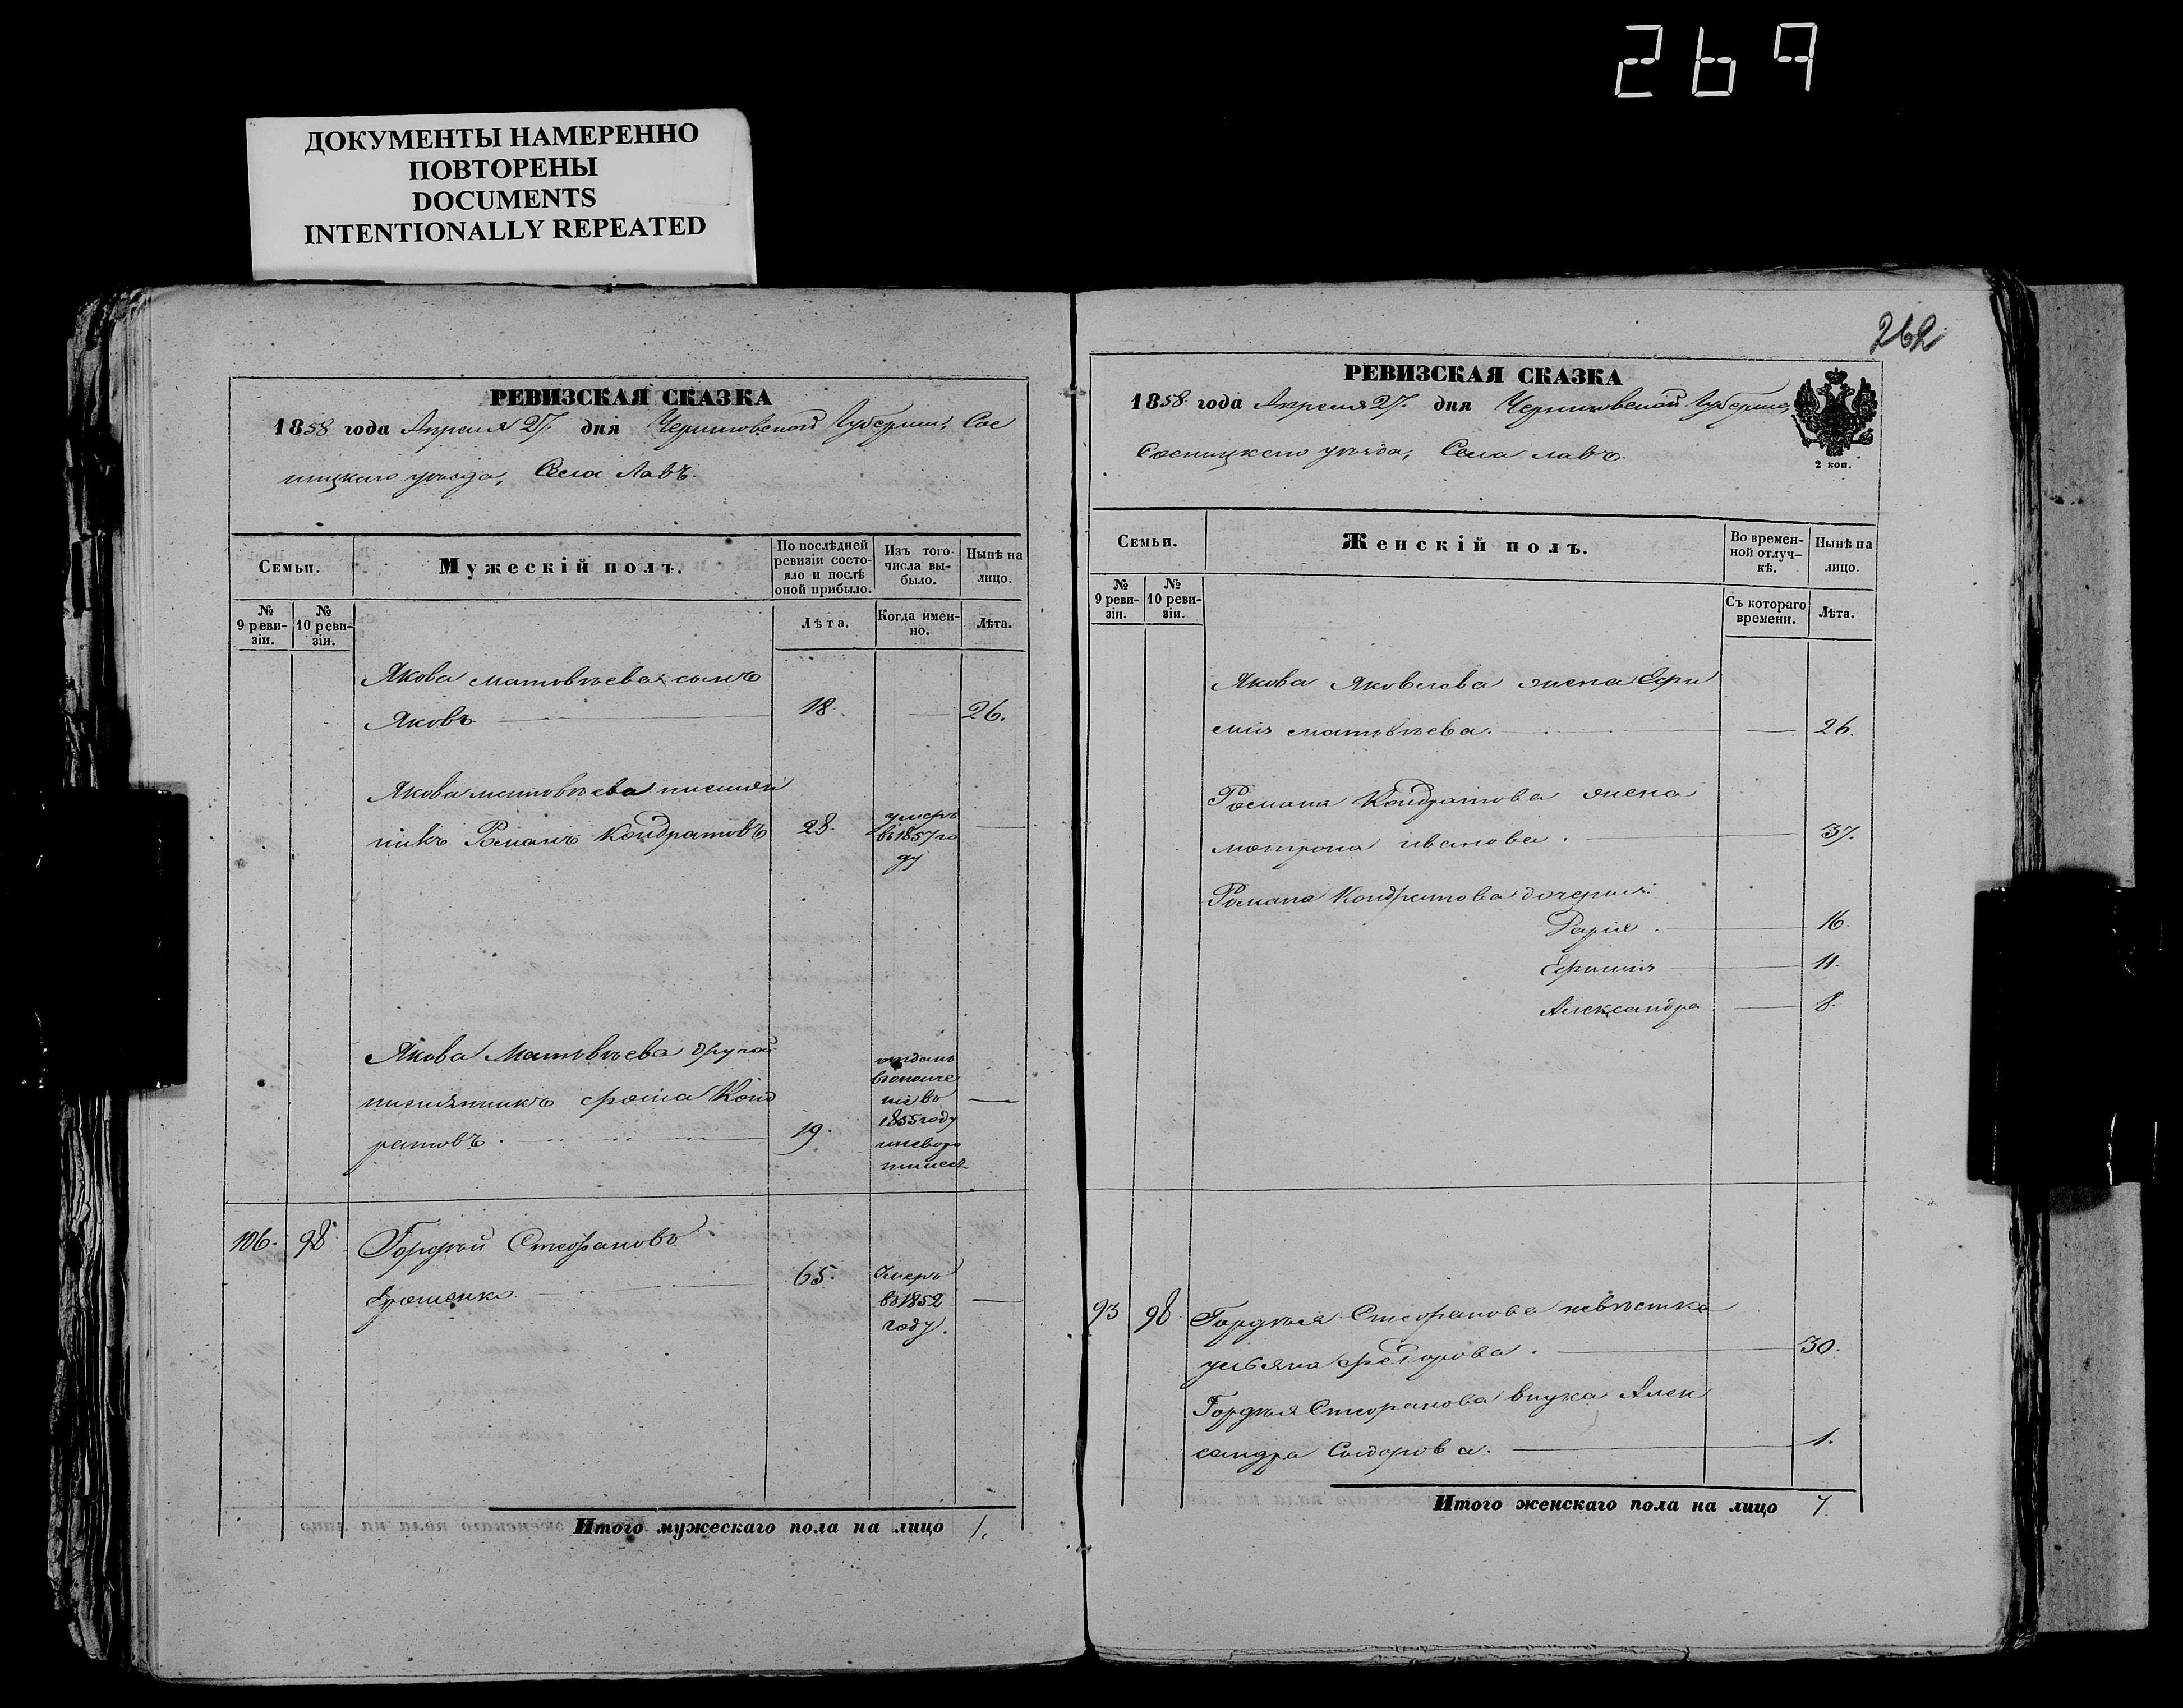 269
ДОКУМЕНТЫ НАМЕРЕННО
ПОВТОРЕНЫ
DOCUMENTS
INTENTIONALLY REPEATED
РЕВИЗСКАЯ СКАЗКА
1858 года Апреля 27. дня Черниговской Губернии, Сос
ницкаго уѣзда, Села Лавъ.
Семьи.
Мужескій полъ.
По послѣдней ревизіи состояло и послѣ оной прибыло.
Изъ того числа выбыло.
Нынѣ на лицо.
№ 9 ревизіи.
№ 10 ревизіи.
Лѣта.
Когда именно.
Лѣта.
Якова Матвѣева сынъ
Яковъ 18. 26.
Якова Матвѣева племян
никъ Романъ Кондратовъ 28. умеръ
въ 1857 го
ду
Якова Матвѣева другой
племянникъ Фома Конд
ратовъ. 19. отданъ
въ ополче
ніе въ
1855 году
106. 98. Гордѣй Стефановъ
65. Умеръ
въ 1852
году.
Итого мужескаго пола на лицо 1.
262
РЕВИЗСКАЯ СКАЗКА
1858 года Апреля 27. дня Черниговской Губернии,
Сосницкаго уѣзда, Села Лавъ.
2 коп.
Семьи.
Женскій полъ.
Во временной отлучкѣ.
Нынѣ на лицо.
№ 9 ревизіи.
№ 10 ревизіи.
Съ котораго времени.
Лѣта.
Якова Яковлева жена Ефи
мія Матвѣева. 26.
Романа Кондратова жена
Мотрона Иванова. 37.
Романа Кондратова дочери:
Дарія. 16.
Ефимія 11.
Александра 8.
93 98 Гордѣя Стефанова невѣстка
Ульяна Федорова. 30.
Гордѣя Стефанова внука Алек
сандра Сидорова. 1.
Итого женскаго пола на лицо 7